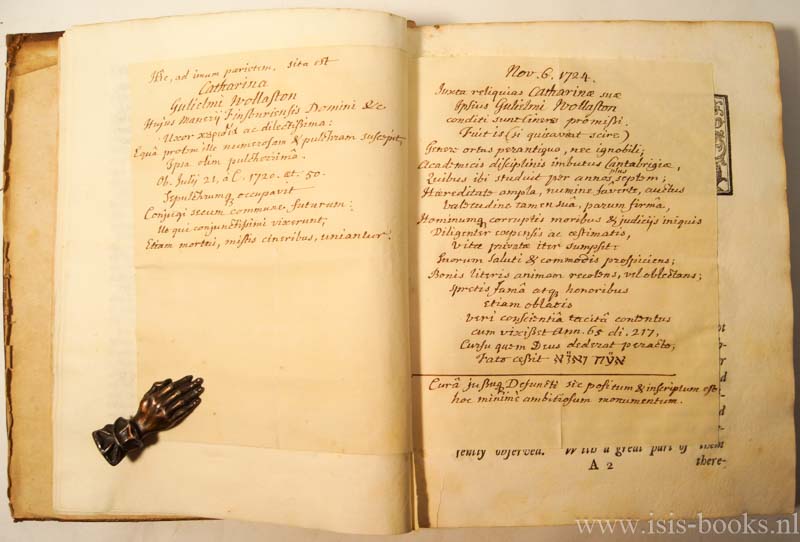 Hic, ad imum parietem, sita est
Catharina
Gulielmi Wollaston
Hujus Manerij Finsburiensis Domini &c
Uxor ac dilectissima:
Equâ protomille numerosam & pulchram suscepit,
Ipsa olim pulcherrimâ.
Ob. Julij 21, a.C. 1720. æt. 50.
Sepulchrumq occupavit
Conjugi secum commune futurum:
Ut qui conjunctissimi vixerunt,
Etiam mortui, mistis cineribus, uniantur.
Nov. 6. 1724.
Juxta reliquias Catharinæ suæ
Ipsius Gulielmi Wollaston
conditi sunt cineres promissi.
Fuit is (si quis aveat scire)
Genere ortus perantiquo, nec ignobili;
Academicis disciplinis imbutus Cantabrigiæ,
Quibus ibi studuit per annos plus septem;
Hæreditate ampla, numine favente, auctus
Valetudine tamen suâ, parum firmâ,
Hominumq corruptis moribus & judicijs iniquis
Diligenter expensis ac æstimatis,
Vitæ privatæ iter sumpsit:
Suorum saluti & commodis prospiciens;
Bonis literis animam recolens, vel oblectans;
Spretis famâ atq honoribus
Etiam oblatis
Veri conscientiâ tacitâ contentus
cum vixisset Ann. 65 di. 217,
Cursu quem Deus dederat peracto,
Fato cessit
Curâ jussuq Defuncti sic positum & inscriptum est
hoc minimè ambitiosum monumentum.
tently observed. With a great part of them
A 2 there-
www.isis-books.nl